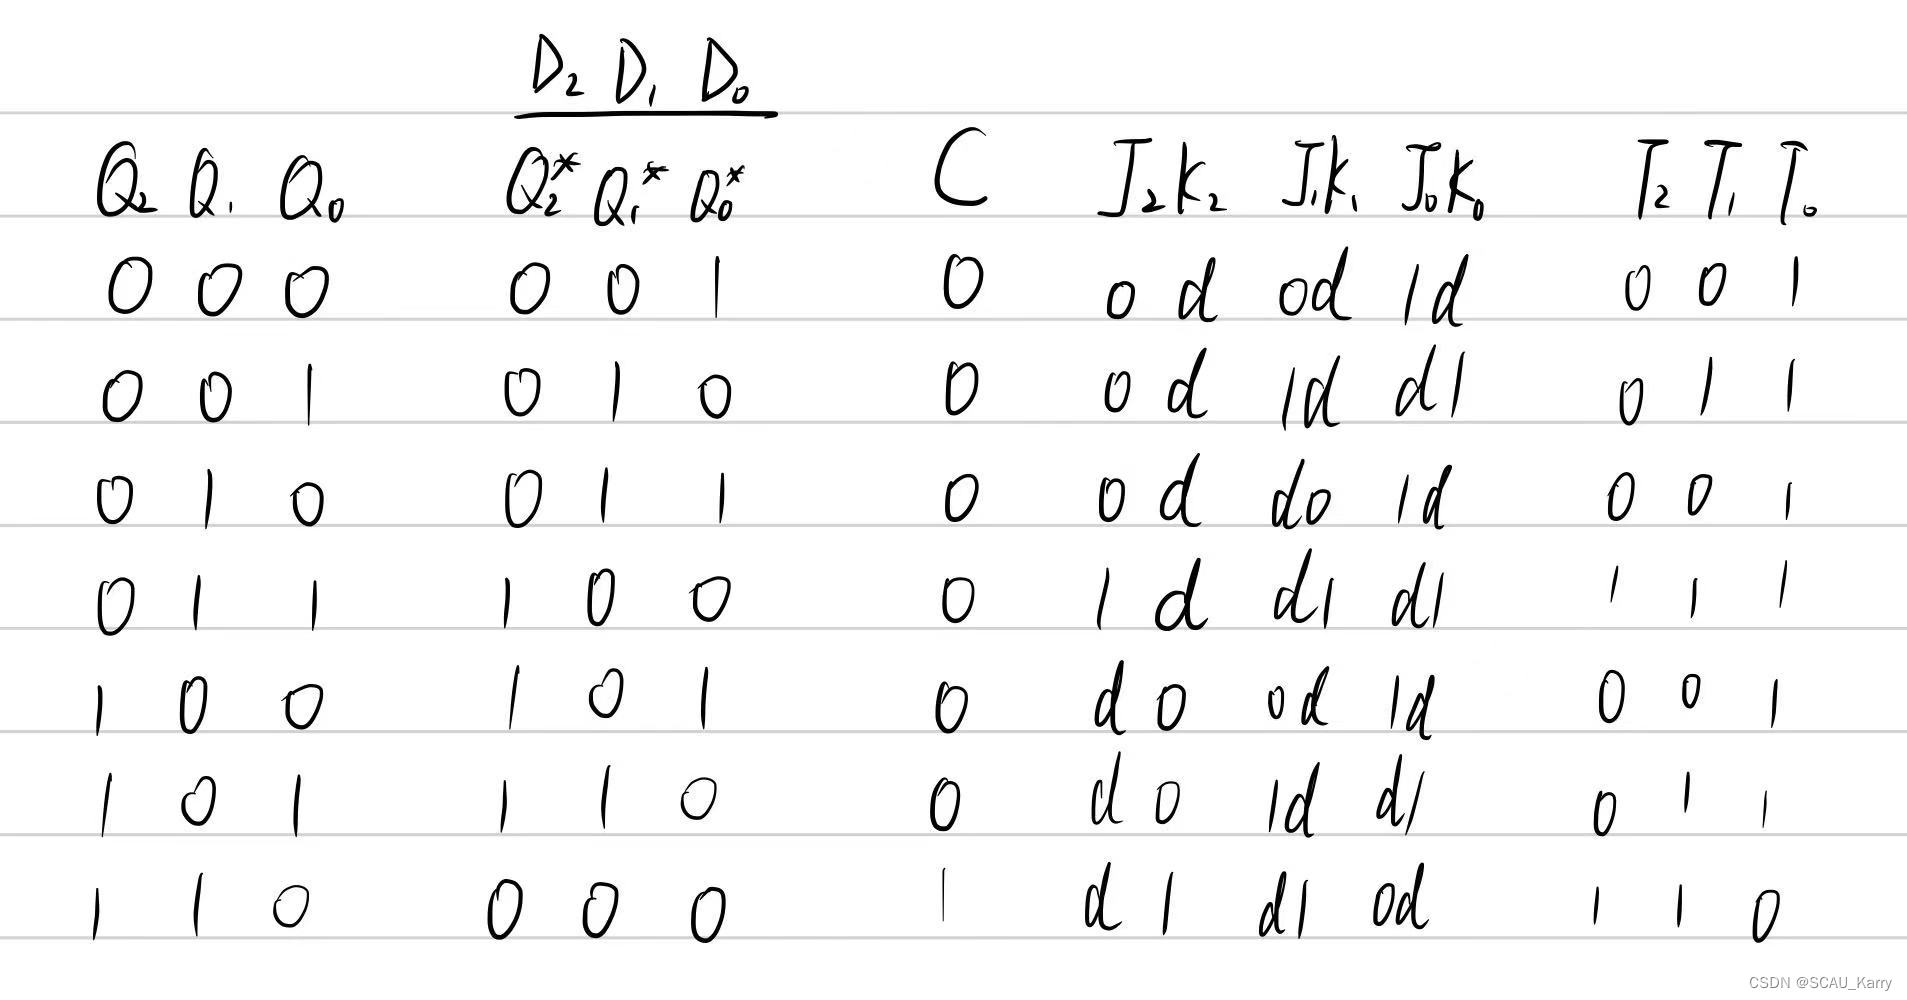 D₂ D₁ D₀
Q₂ Q₁ Q₀ Q₂* Q₁* Q₀* C J₂K₂ J₁K₁ J₀K₀ T₂ T₁ T₀
0 0 0 0 0 1 0 0 d 0d 1d 0 0 1
0 0 1 0 1 0 0 0 d 1d d1 0 1 1
0 1 0 0 1 1 0 0 d d0 1d 0 0 1
0 1 1 1 0 0 0 1 d d1 d1 1 1 1
1 0 0 1 0 1 0 d 0 0d 1d 0 0 1
1 0 1 1 1 0 0 d 0 1d d1 0 1 1
1 1 0 0 0 0 1 d 1 d1 0d 1 1 0
CSDN @SCAU_Karry